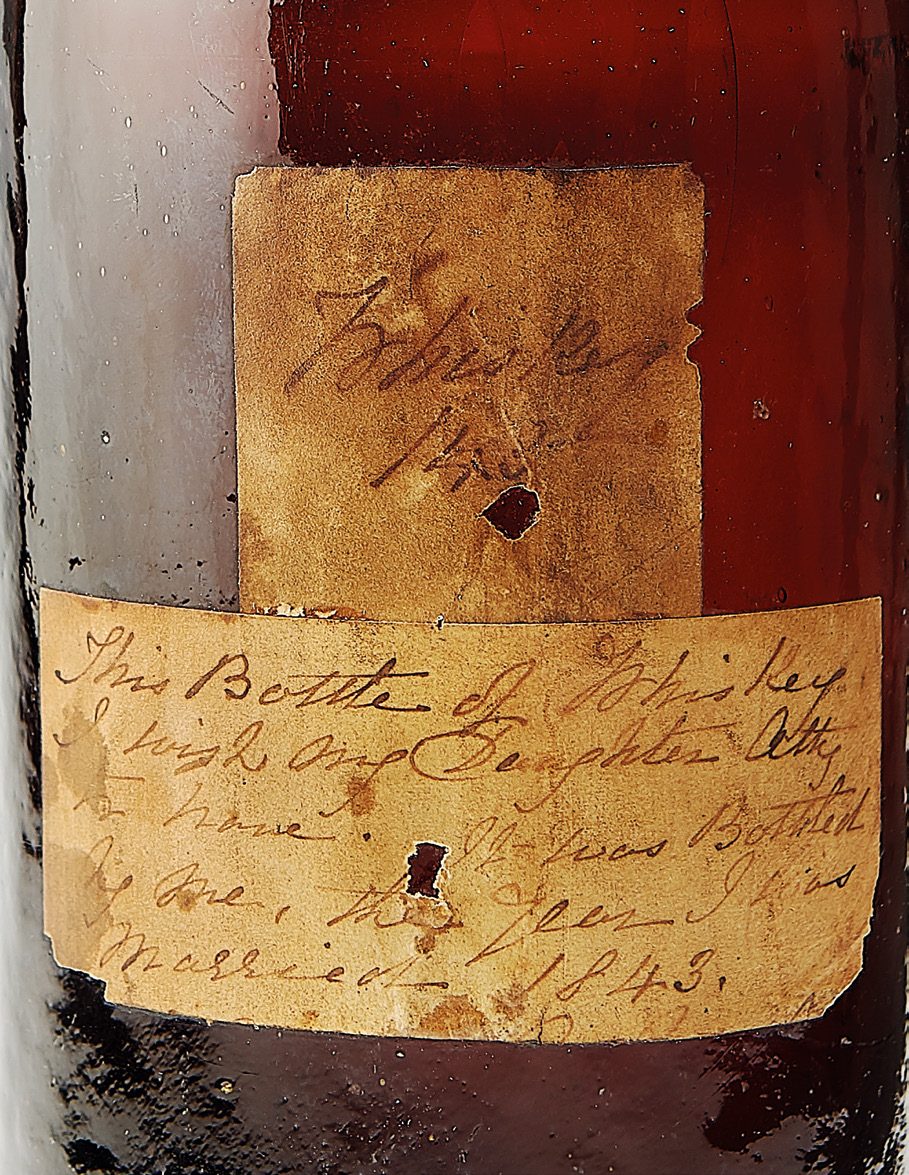 Whiskey
This Bottle of Whiskey
I wish my Daughter Atty
to have. It was Bottled
by me, the Year I was
Married 1843.